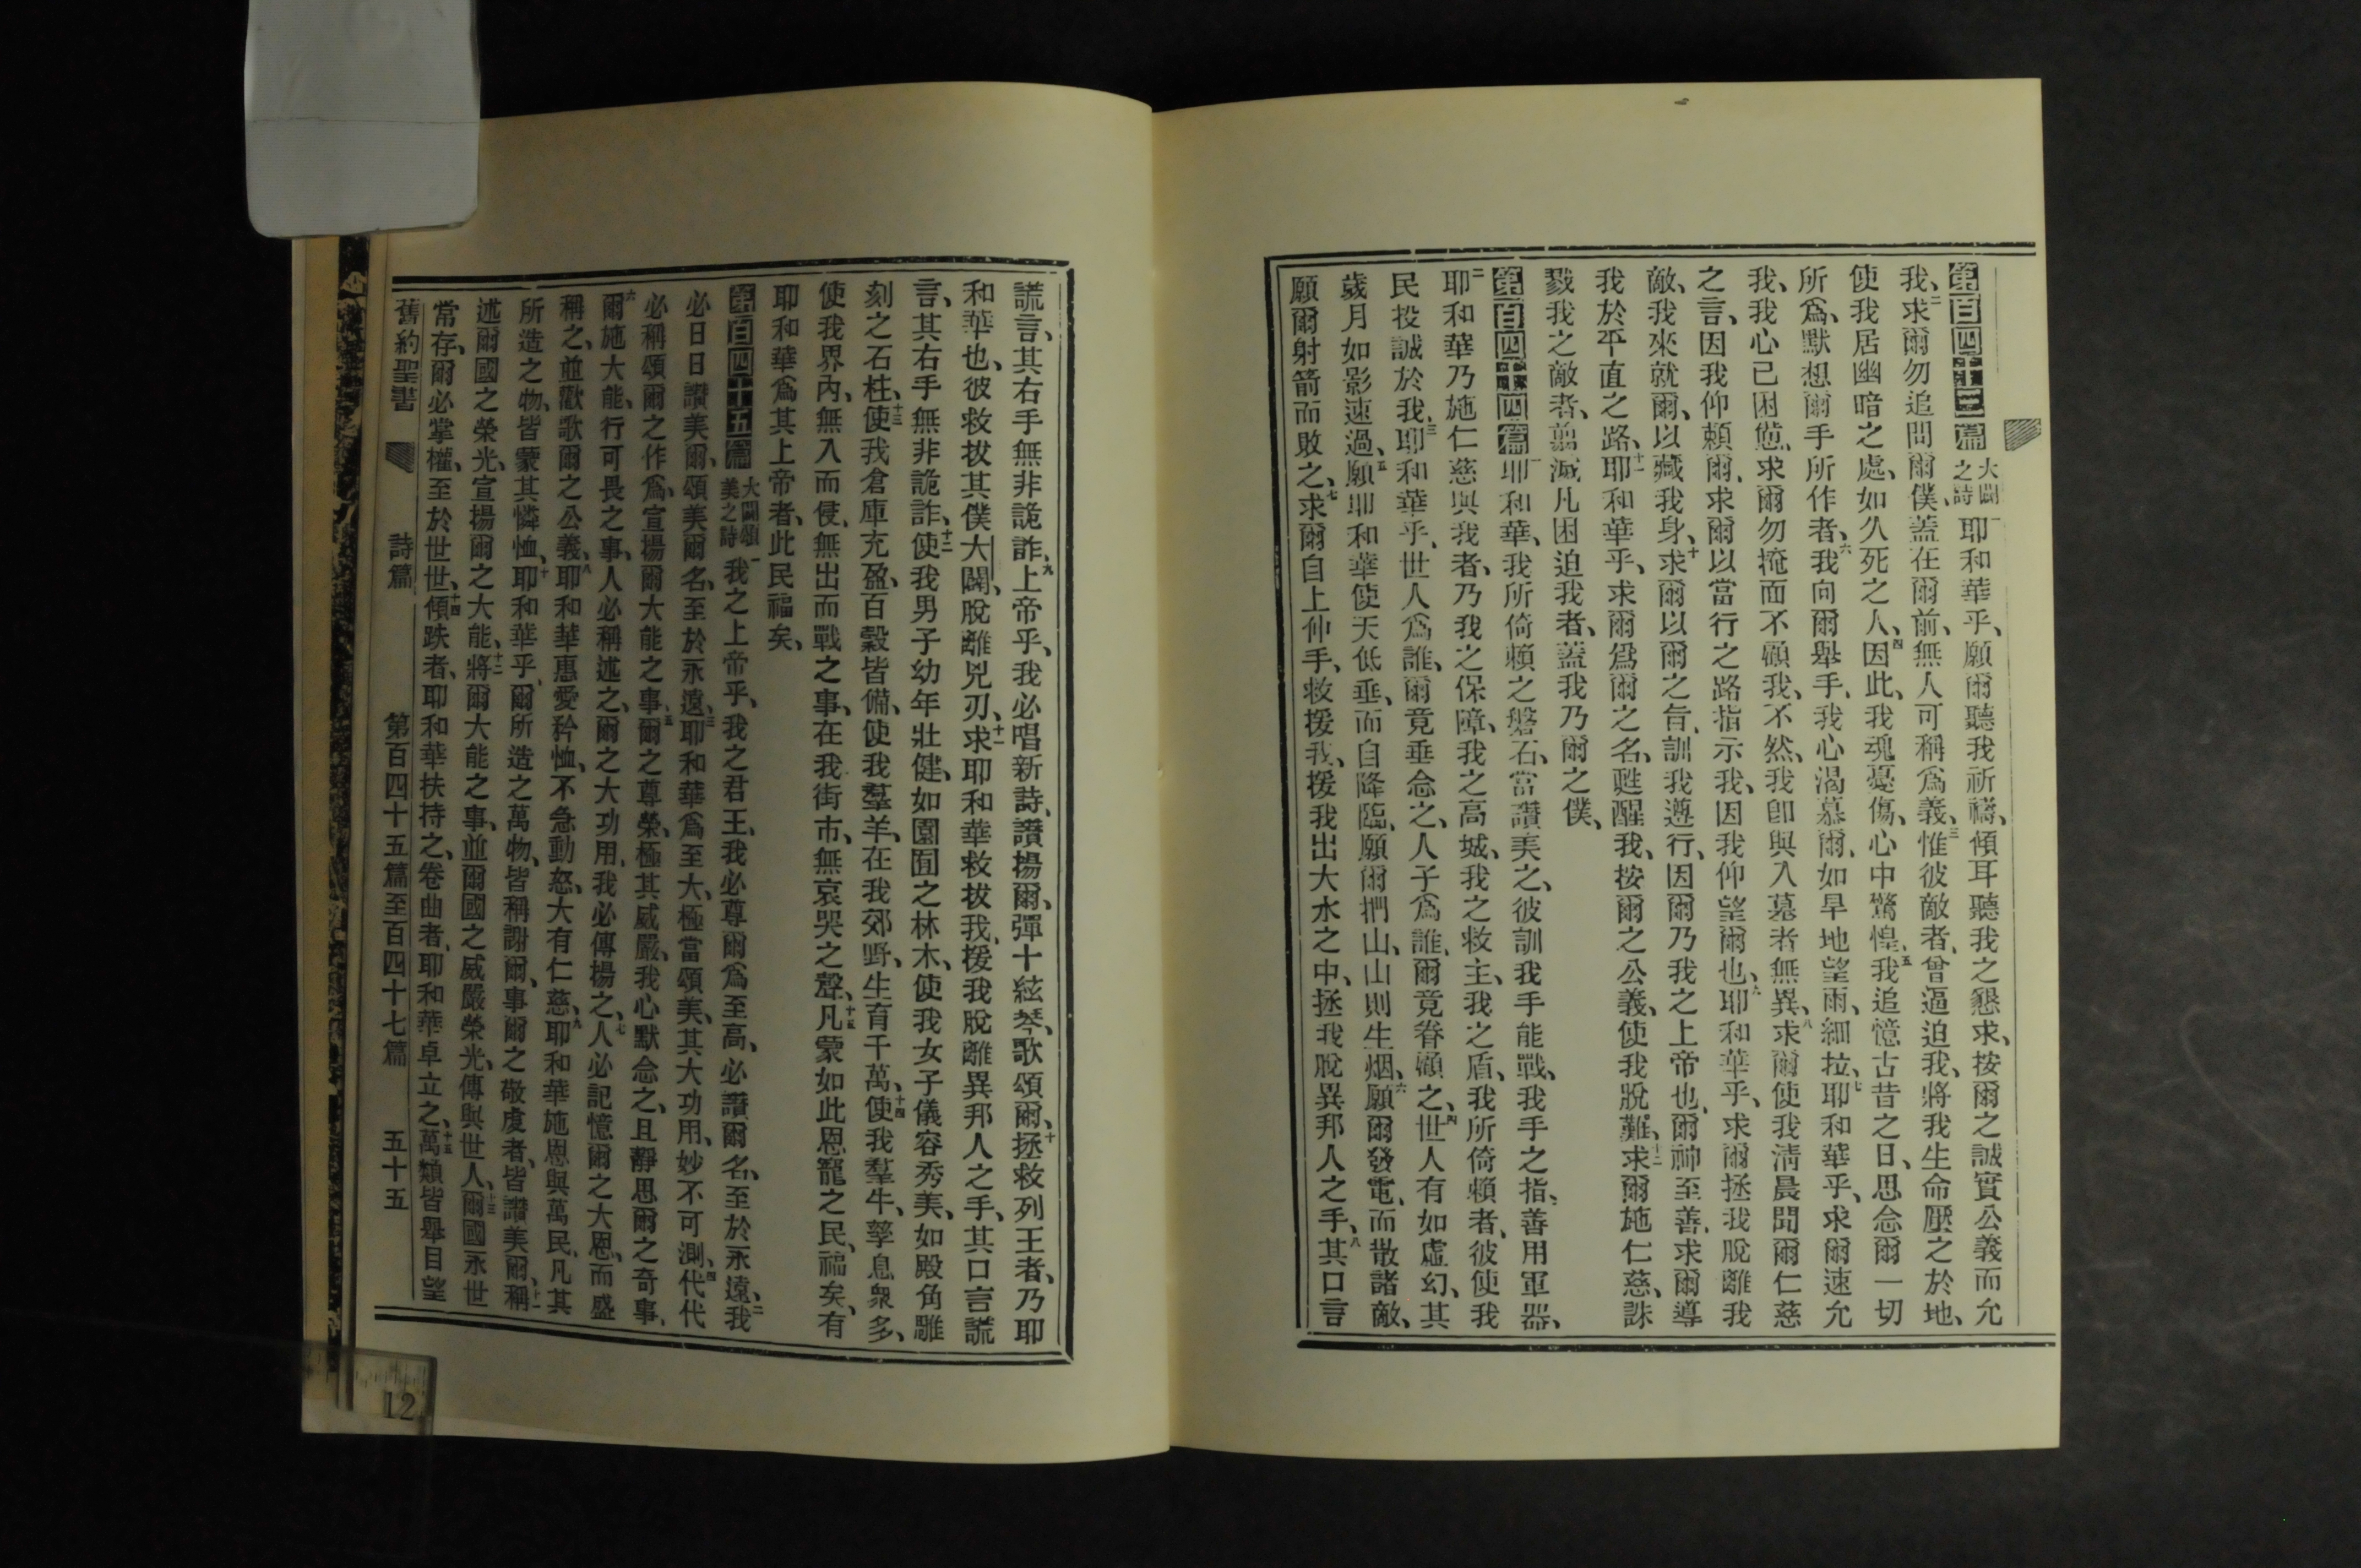 第百四十三篇 大闢之詩 一耶和華乎、願爾聽我祈禱、傾耳聽我之懇求、按爾之誠實公義而允
我、二求爾勿追問爾僕、蓋在爾前、無人可稱爲義、三惟彼敵者、曾逼迫我、將我生命壓之於地、
使我居幽暗之處、如久死之人、四因此、我魂憂傷、心中驚惶、五我追憶古昔之日、思念爾一切
所爲、默想爾手所作者、六我向爾舉手、我心渴慕爾、如旱地望雨、細拉、七耶和華乎、求爾速允
我、我心已困憊、求爾勿掩面不顧我、不然、我卽與入墓者無異、八求爾使我淸晨聞爾仁慈
之言、因我仰賴爾、求爾以當行之路指示我、因我仰望爾也、九耶和華乎、求爾拯我脫離我
敵、我來就爾、以藏我身、十求爾以爾之旨、訓我遵行、因爾乃我之上帝也、爾神至善、求爾導
我於平直之路、十一耶和華乎、求爾爲爾之名、甦醒我、按爾之公義、使我脫難、十二求爾施仁慈、誅
戮我之敵者、翦滅凡困迫我者、蓋我乃爾之僕、
第百四十四篇 一耶和華、我所倚賴之磐石、當讚美之、彼訓我手能戰、我手之指、善用軍器、
二耶和華乃施仁慈與我者、乃我之保障、我之高城、我之救主、我之盾、我所倚賴者、彼使我
民投誠於我、三耶和華乎、世人爲誰、爾竟垂念之、人子爲誰、爾竟眷顧之、四世人有如虛幻、其
歲月如影速過、五願耶和華使天低垂、而自降臨、願爾捫山、山則生烟、六願爾發電、而散諸敵、
願爾射箭而敗之、七求爾自上伸手、救援我、援我出大水之中、拯我脫異邦人之手、八其口言
謊言、其右手無非詭詐、九上帝乎、我必唱新詩、讚揚爾、彈十絃琴、歌頌爾、十拯救列王者、乃耶
和華也、彼救拔其僕大闢、脫離兇刃、十一求耶和華救拔我、援我脫離異邦人之手、其口言謊
言、其右手無非詭詐、十二使我男子幼年壯健、如園囿之林木、使我女子儀容秀美、如殿角雕
刻之石柱、十三使我倉庫充盈、百穀皆備、使我羣羊、在我郊野、生育千萬、十四使我羣牛、孳息衆多、
使我界內、無入而侵、無出而戰之事、在我街市、無哀哭之聲、十五凡蒙如此恩寵之民、福矣、有
耶和華爲其上帝者、此民福矣、
第百四十五篇 大闢頌美之詩 一我之上帝乎、我之君王、我必尊爾爲至高、必讚爾名、至於永遠、二我
必日日讚美爾、頌美爾名、至於永遠、三耶和華爲至大、極當頌美、其大功用、妙不可測、四代代
必稱頌爾之作爲、宣揚爾大能之事、五爾之尊榮、極其威嚴、我心默念之、且靜思爾之奇事、
六爾施大能、行可畏之事、人必稱述之、爾之大功用、我必傳揚之、七人必記憶爾之大恩、而盛
稱之、並歡歌爾之公義、八耶和華惠愛矜恤、不急動怒、大有仁慈、九耶和華施恩與萬民、凡其
所造之物、皆蒙其憐恤、十耶和華乎、爾所造之萬物、皆稱謝爾、事爾之敬虔者、皆讚美爾、十一稱
述爾國之榮光、宣揚爾之大能、十二將爾大能之事、並爾國之威嚴榮光、傳與世人、十三爾國永世
常存、爾必掌權、至於世世、十四傾跌者、耶和華扶持之、卷曲者、耶和華卓立之、十五萬類皆舉目望
舊約聖書 詩篇 第百四十五篇至百四十七篇 五十五
12